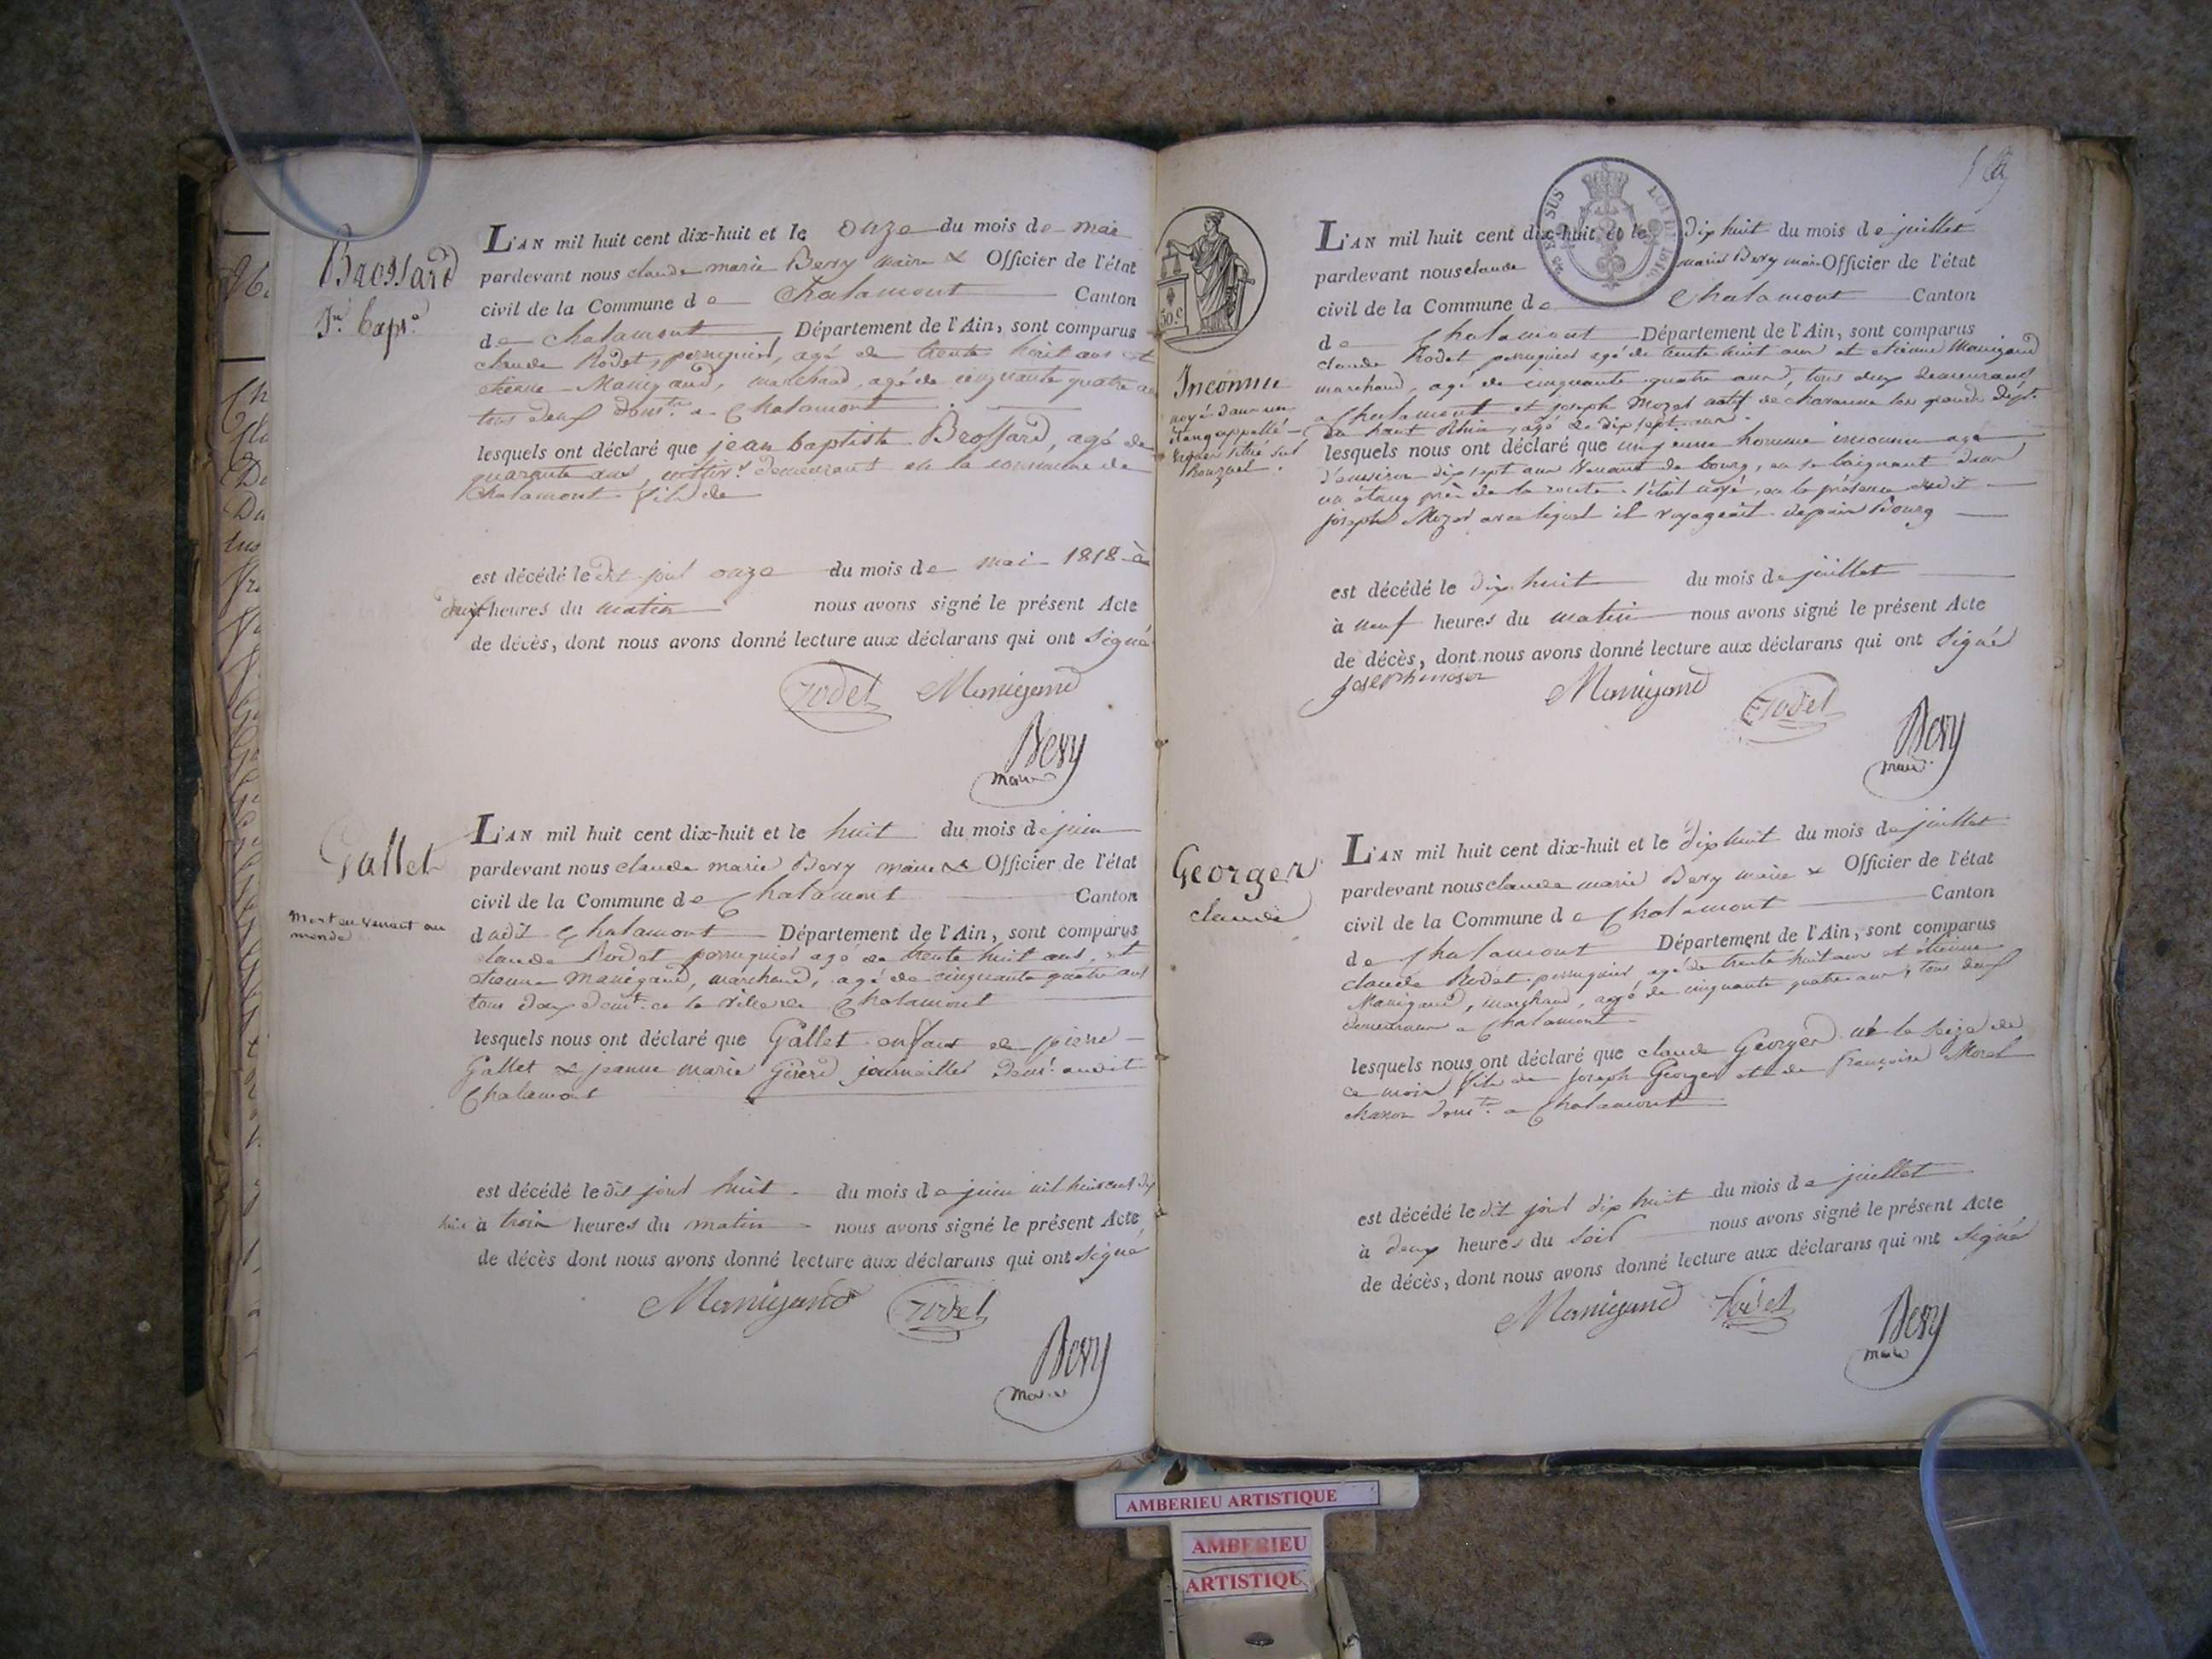 Brossard
Jn. Bapte.
L'AN mil huit cent dix-huit et le onze du mois de mai
pardevant nous claude marie Bery maire & Officier de l'état
civil de la Commune de Chalamont Canton
de Chalamont Département de l'Ain, sont comparus
claude Rodet, perruquier, agé de trente huit ans et
etienne Manigand, marchand, agé de cinquante quatre
tous deux domts. a Chalamont
lesquels ont déclaré que jean baptiste Brossard, agé de
quarante ans, demeurant en la commune de
Chalamont fils de
est décédé le dit jour onze du mois de mai 1818 à
heures du matin nous avons signé le présent Acte
de décès, dont nous avons donné lecture aux déclarans qui ont signé
Rodet Manigand
Bery
maire
Gallet
Mort en venant au
monde
L'AN mil huit cent dix-huit et le huit du mois de juin
pardevant nous claude marie Bery maire & Officier de l'état
civil de la Commune de Chalamont Canton
dudit Chalamont Département de l'Ain, sont comparus
claude Rodet perruquier agé de trente huit ans, et
etienne Manigand, marchand, agé de cinquante quatre ans
tous deux demt. a la ville de Chalamont
lesquels nous ont déclaré que Gallet enfant de pierre
Gallet & jeanne marie Girerd journalier demt. audit
Chalamont
est décédé le dit jour huit du mois de juin mil huit cent dix
huit à trois heures du matin nous avons signé le présent Acte
de décès dont nous avons donné lecture aux déclarans qui ont signé
Manigand Rodet
Bery
maire
50.c
SUS LOI DE 1816.
Inconnu
noyé dans un
étang appellé
situé sur
Ronzuel.
L'AN mil huit cent dix-huit et le dix huit du mois de juillet
pardevant nous claude marie Bery maire Officier de l'état
civil de la Commune de Chalamont Canton
de Chalamont Département de l'Ain, sont comparus
claude Rodet perruquier agé de trente huit ans et etienne Manigand
marchand, agé de cinquante quatre ans, tous deux demeurans
a Chalamont et joseph Mozer natif de chavanne les grands dépt.
du haut Rhin, agé de dix sept ans.
lesquels nous ont déclaré que un jeune homme inconnu agé
d'environ dix sept ans venant de bourg, en se baignant dans
un étang près de la route s'était noyé, en la présence dudit
joseph Mozer avec lequel il voyageait depuis Bourg
est décédé le dix huit du mois de juillet
à neuf heures du matin nous avons signé le présent Acte
de décès, dont nous avons donné lecture aux déclarans qui ont signé
joseph moser Manigand Rodet
Bery
maire
Georger
claude
L'AN mil huit cent dix-huit et le dix huit du mois de juillet
pardevant nous claude marie Bery maire & Officier de l'état
civil de la Commune de Chalamont Canton
de Chalamont Département de l'Ain, sont comparus
claude Rodet perruquier, agé de trente huit ans et étienne
Manigand, marchand, agé de cinquante quatre ans, tous deux
demeurans a Chalamont
lesquels nous ont déclaré que claude Georger né le seize de
ce mois fils de joseph Georger et de françoise Morel
charron domts. a Chalamont
est décédé le dit jour dix huit du mois de juillet
à deux heures du soir nous avons signé le présent Acte
de décès, dont nous avons donné lecture aux déclarans qui ont signé
Manigand Rodet
Bery
maire
AMBERIEU ARTISTIQUE
AMBERIEU
ARTISTIQU